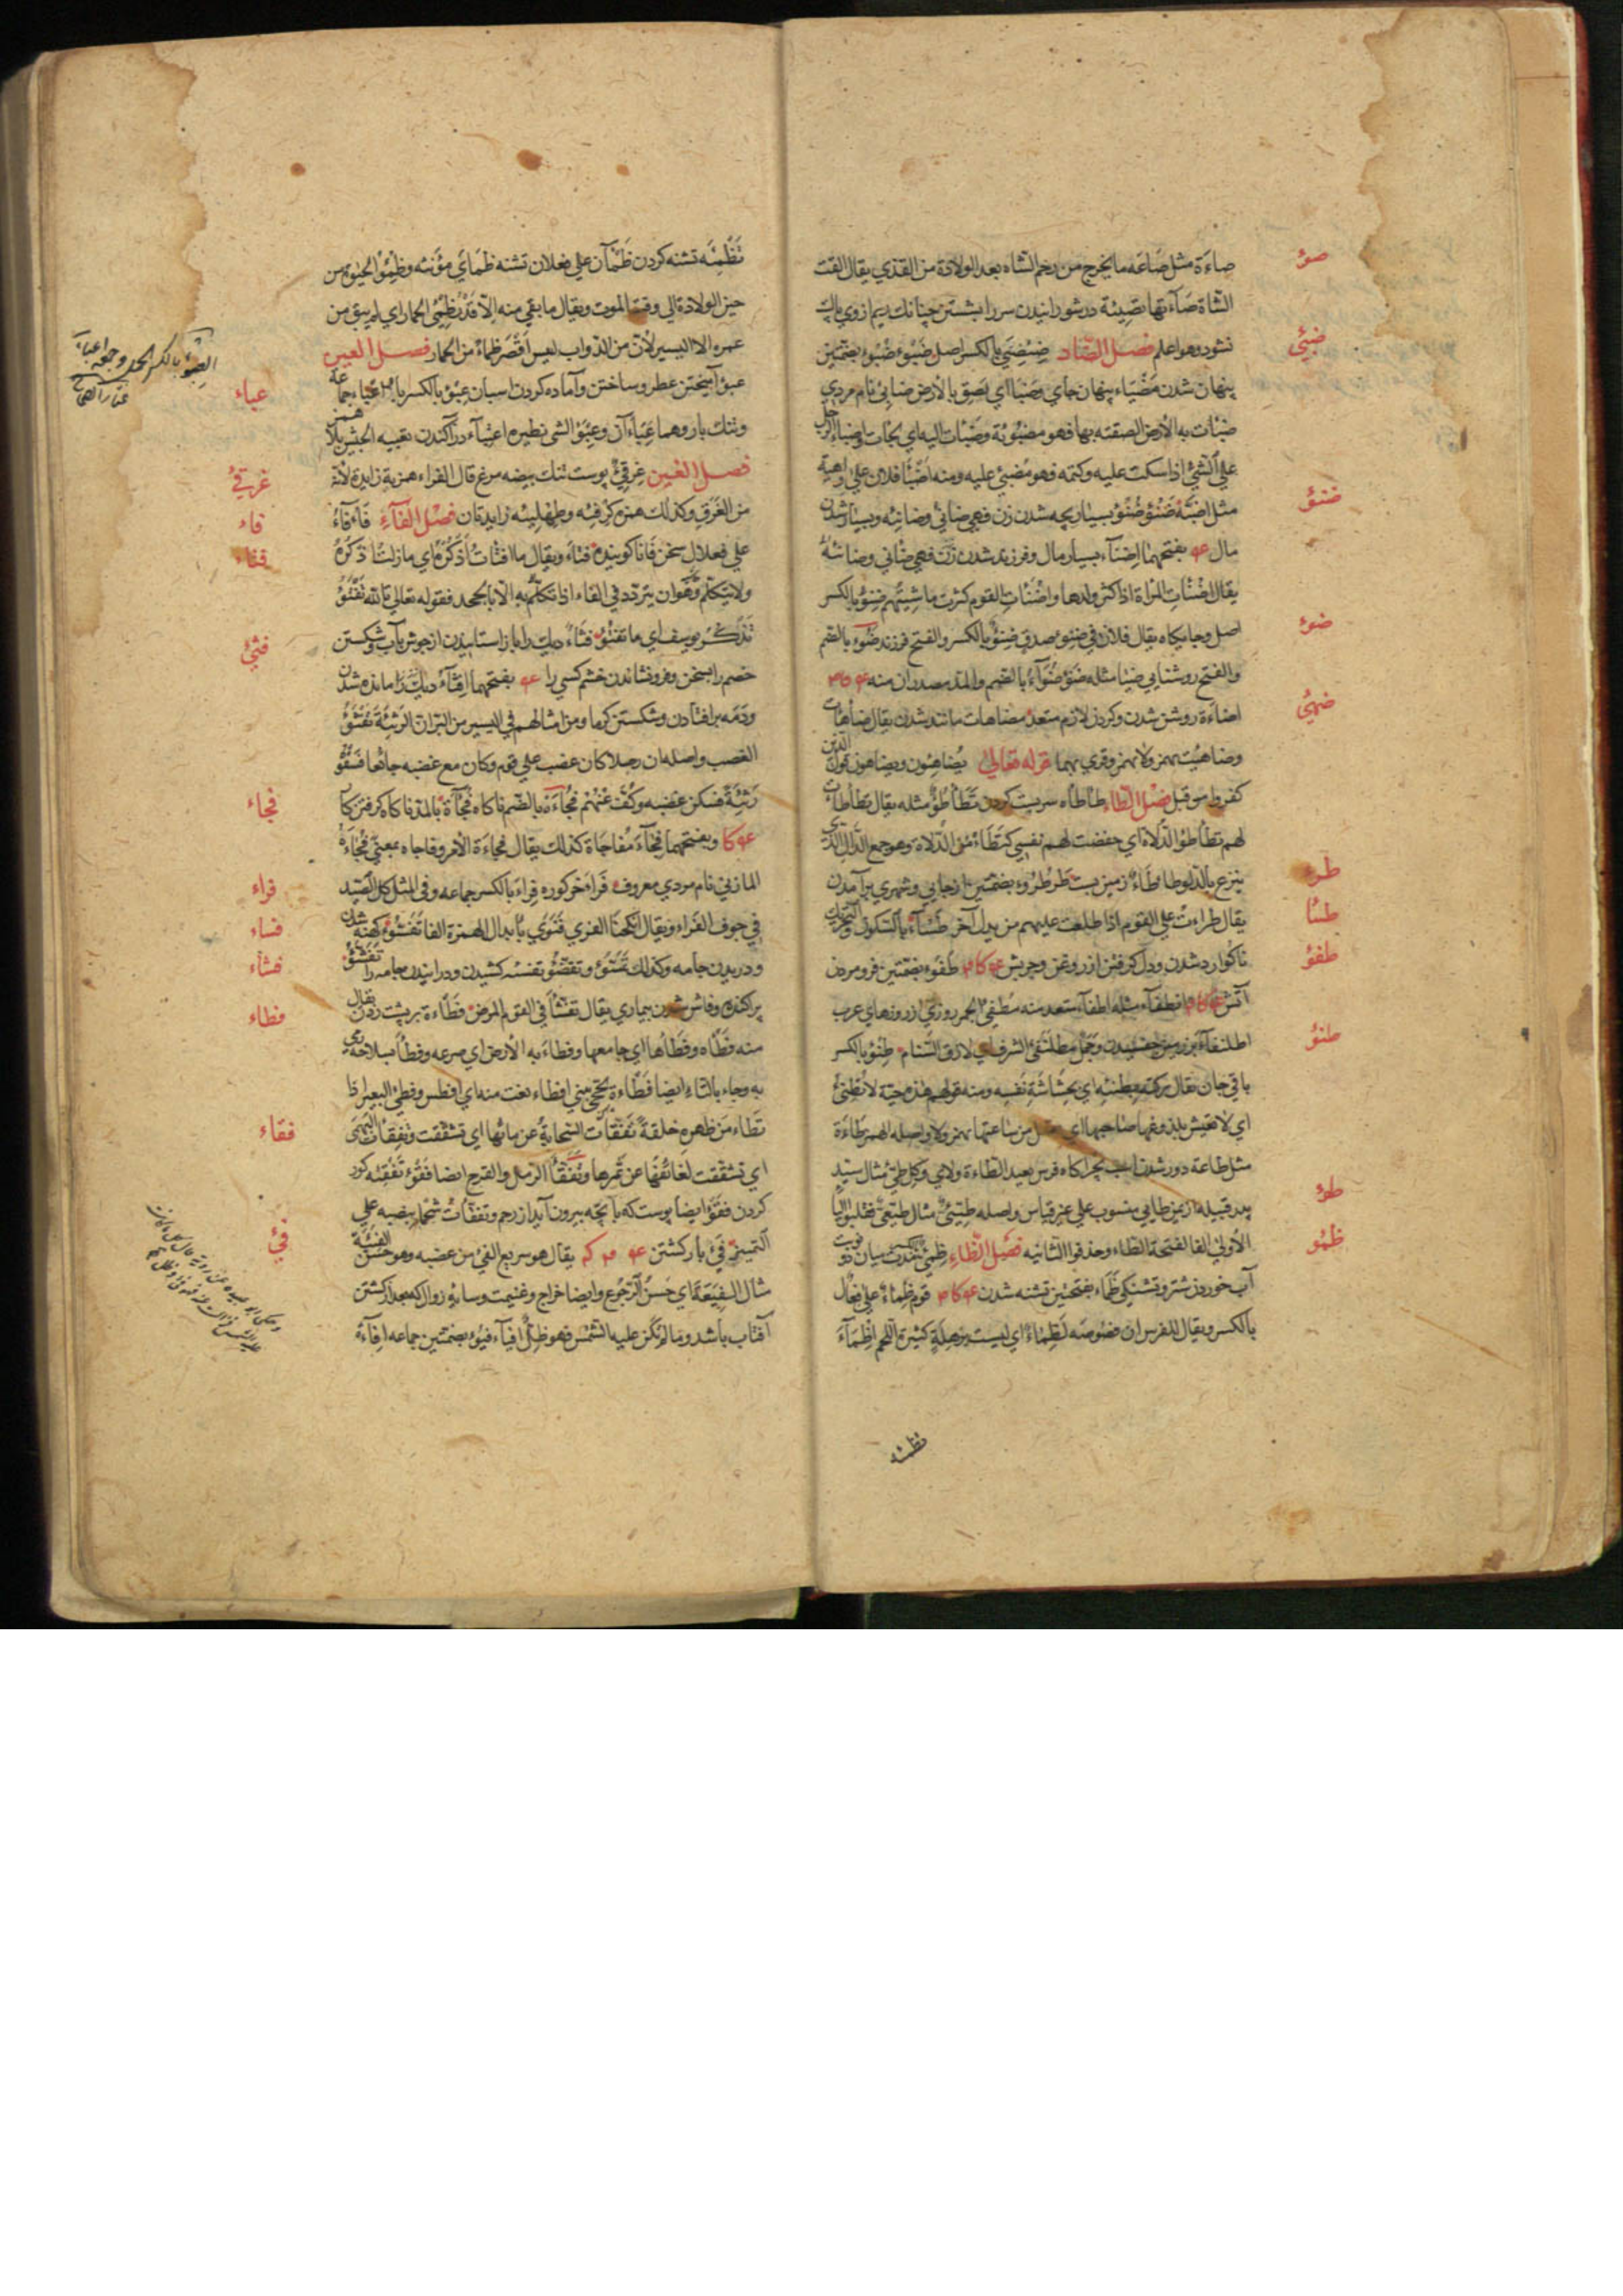 صوء
صاءة مثل صاعة ما يخرج من رحم الشاه بعد الولادة من القذي يقال القت
الشاة صآءتها تصيئة در شورانيدن سر را بشستن چنانك ريم از وي پاك
ضبئ
نشود وهو اعلم فصل الضاد ضئضئ بالكسر اصل ضبوء ضبوء بضمتين
پنهان شدن مضباء پنهان جاي وضبا اي لصق بالارض ضابئ نام مردي
ضبأت به الارض الصقته بها فهو مضبوءة وضبأت اليه اي لجأت واضباء الرجل
علي الشئ اذا سكت عليه وكتمه فهو مضبئ عليه ومنه اضبأ فلان علي داهية
ضنؤ
مثل اضب ضنؤ ضنوء بسيار بچه شدن زن فهي ضانئ وضانئة وبسيار شدن
مال بفتحهما اضنآء بسيار مال وفرزند شدن زن فهي ضانئ وضانئة
يقال اضنأت المراة اذا كثر ولدها واضنأت القوم كثرت ماشيتهم ضنؤ بالكسر
ضوء
اصل وجايكاه يقال فلان في ضنؤ صدق ضنؤ بالكسر والفتح فرزند ضوء بالضم
والفتح روشنايي ضيا مثله ضوء ضواء بالضم والمد مصدران منه
ضهئ
اضاءة روشن شدن وكردن لازم متعد مضاهات مانند شدن يقال ضاهات
وضاهيت يهمز ولا يهمز وقري بهما قوله تعالي يضاهئون ويضاهون قول الذين
كفروا من قبل فصل الطاء طأطأه سر پست كردن تطأطؤ مثله يقال تطأطأت
لهم تطأطؤ الدلاة اي خفضت لهم نفسي كتطأطؤ الدلاة وهو جمع الدال الذي
طرء
ينزع بالدلو طاطاء زمين پست طرء طروء بضمتين از جايي وشهري برآمدن
طسأ
يقال طراءت علي القوم اذا طلعت عليهم من بلد آخر طسآء بالسكون والتحريك
طفؤ
ناكوارد شدن ودل كرفتن از روغن وچربش طفوء بضمتين فرو مردن
آتش انطفآء مثله اطفآء متعد منه مطفئ الجمر روزي از روزهاي عرب
طنؤ
اطلنفآء بر زمين چفسيدن وجمل مطلنفئ الشرف اي لازق السنام طنؤ بالكسر
باقي جان يقال تركته بطنئه اي بحشاشة نفسه ومنه قولهم هذه حية لا تطنئ
اي لا تعيش يلدغ فيها صاحبها اي من ساعتها يهمز ولا واصله الهمز طاءة
مثل طاعة دور شدن اسب بچراكاه فرس بعيد الطاءة ولامي وكل طئ مثال سيد
طوء
پدر قبيله از يمن طايي منسوب علي غير قياس واصله طيئي مثال طيعي فقلبوا اليا
ظمؤ
الاولي الفا لفتحة الطاء وحذفوا الثانيه فصل الظاء ظمئ بالكسر مدت ميان دو نوبت
آب خوردن شتر وتشنكي ظماء بفتحتين تشنه شدن قوم ظماء علي فعال
بالكسر ويقال للفرس ان فصوصه لظماء اي ليست برهلة كثيرة اللحم اظمآء
تظمئه
تظمئه تشنه كردن ظمآن علي فعلان تشنه ظمأي مؤنثه وظمؤ الحيوة من
حين الولادة الي وقت الموت ويقال ما بقي منه الا قدر ظمئ الحمار اي لم يبق من
عمره الا اليسير لان من الدواب ليس اقصر ظماء من الحمار فصل العين
عباء
عبؤ آميختن عطر وساختن وآماده كردن اسبان عبؤ بالكسر بار اعباء جماعه
وتنك بار وهما عبآن وعبؤ الشئ نظيره اعتباء درآكندن تعبيه الجيش بلا همز
غرقئ
فصل الغين غرقئ پوست تنك بيضه مرغ قال الفراء همزته زايدة لانه
فاء
من الغرق وكذلك همزة كرفئه وطهلئه زايدتان فصل الفآء فأفاء
فتاء
علي فعلال سخن فا فا كوينده فتاء ويقال ما افتات اذكره اي ما زلت اذكره
ولا يتكلم وهو ان يتردد في الفاء اذا تكلم به الا بالجحد فقوله تعالي تالله تفتؤ
فثئ
تذكر يوسف اي ما تفتؤ فثاء ديك را باز استانيدن از جوش بآب وشكستن
خصم را بسخن وفرو نشاندن خشم كسي را بفتحهما افثآء ديك را مانده شدن
ودمه برافتادن وشكستن كرما ومن امثالهم في اليسير من البر ان الرثيئة تفثؤ
الغضب واصله ان رجلا كان غضب علي قوم وكان مع غضبه جائعا فسقوه
فجاء
رثيئة فسكن غضبه وكف عنهم فجاءة بالضم ناكاه فجآءة بالمد ناكاه كرفتن كا
وبفتحهما فجآء مفاجاة كذلك يقال فجاءة الامر وفاجاه بمعني فجاءة
فراء
المازني نام مردي معروف فراء خر كوره فراء بالكسر جماعه وفي المثل كل الصيد
فساء
في جوف الفراء ويقال انكحنا الفري فنري بابدال الهمزة الفا تفسؤ كهنه شدن
فشاء
ودريدن جامه وكذلك تفسؤ وتفصؤ تفسئه كشيدن ودرانيدن جامه را تفشؤ
فطاء
پراكنده وفاش شدن بيماري يقال تفشأ في القوم المرض فطاءة بر پشت زدن يقال
منه فطاه وفطأها اي جامعها وفطاء به الارض اي صرعه وفطأ بسلاحه رمي
به وجاء بالثاء ايضا فطاءة پخچ بيني افطاء نعت منه اي افطس وفطئ البعير اذا
فقاء
تطاء من ظهره خلقة تفقأت السحابة عن مائها اي تشققت وتفقأت البهمي
اي تشققت لفائفها عن ثمرها وتفقأ الدمل والقرح ايضا فقؤ تفقئه كور
كردن فقؤ ايضا پوست كه با بچه بيرون آيد از رحم وتفقأت شحما بنصبه علي
فئ
التمييز فئ باز كشتن يقال هو سريع الفئ من غضبه وهو حسن الفيئة
مثال الفيعة اي حسن الرجوع وايضا خراج وغنيمت وسايه زوال كه بعد از كشتن
آفتاب باشد وما لم تكن عليه الشمس فهو ظل افيآء فيوء بضمتين جماعه افآءة
العبؤ بالكسر الحمل وجمعه اعباء
مختار الصحاح